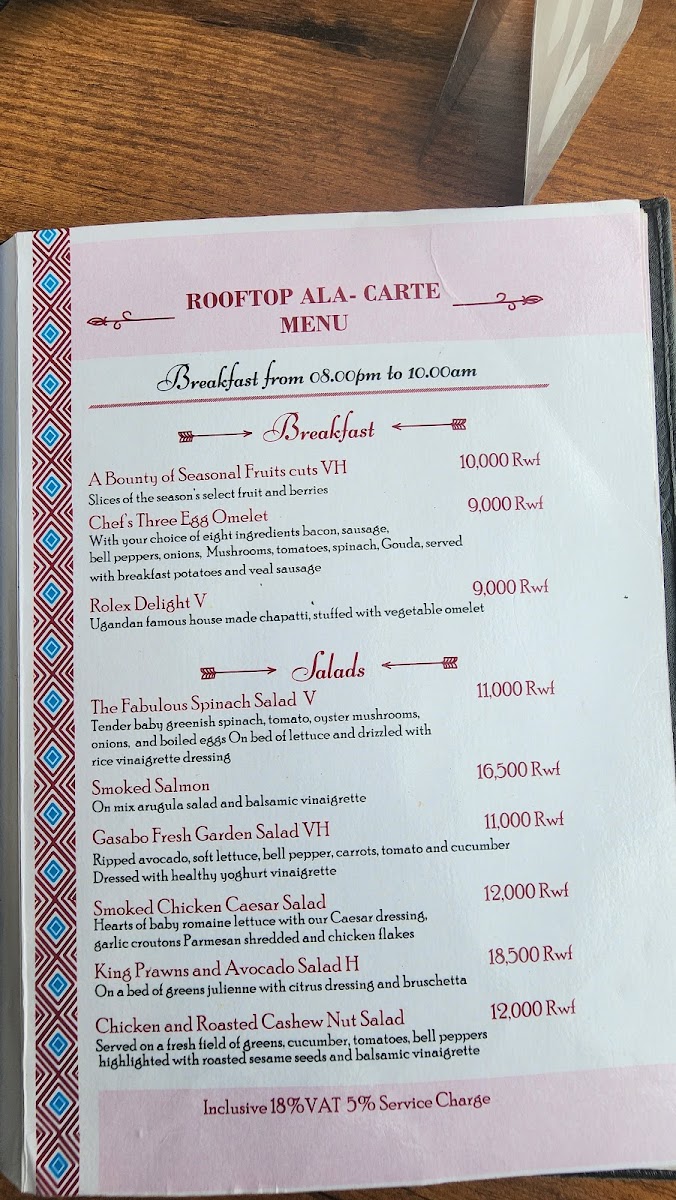 ROOFTOP ALA- CARTE
MENU
Breakfast from 08.00pm to 10.00am
Breakfast
A Bounty of Seasonal Fruits cuts VH 10,000 Rwf
Slices of the season's select fruit and berries
Chef's Three Egg Omelet 9,000 Rwf
With your choice of eight ingredients bacon, sausage,
bell peppers, onions, Mushrooms, tomatoes, spinach, Gouda, served
with breakfast potatoes and veal sausage
Rolex Delight V 9,000 Rwf
Ugandan famous house made chapatti, stuffed with vegetable omelet
Salads
The Fabulous Spinach Salad V 11,000 Rwf
Tender baby greenish spinach, tomato, oyster mushrooms,
onions, and boiled eggs On bed of lettuce and drizzled with
rice vinaigrette dressing
Smoked Salmon 16,500 Rwf
On mix arugula salad and balsamic vinaigrette
Gasabo Fresh Garden Salad VH 11,000 Rwf
Ripped avocado, soft lettuce, bell pepper, carrots, tomato and cucumber
Dressed with healthy yoghurt vinaigrette
Smoked Chicken Caesar Salad 12,000 Rwf
Hearts of baby romaine lettuce with our Caesar dressing,
garlic croutons Parmesan shredded and chicken flakes
King Prawns and Avocado Salad H 18,500 Rwf
On a bed of greens julienne with citrus dressing and bruschetta
Chicken and Roasted Cashew Nut Salad 12,000 Rwf
Served on a fresh field of greens, cucumber, tomatoes, bell peppers
highlighted with roasted sesame seeds and balsamic vinaigrette
Inclusive 18%VAT 5% Service Charge